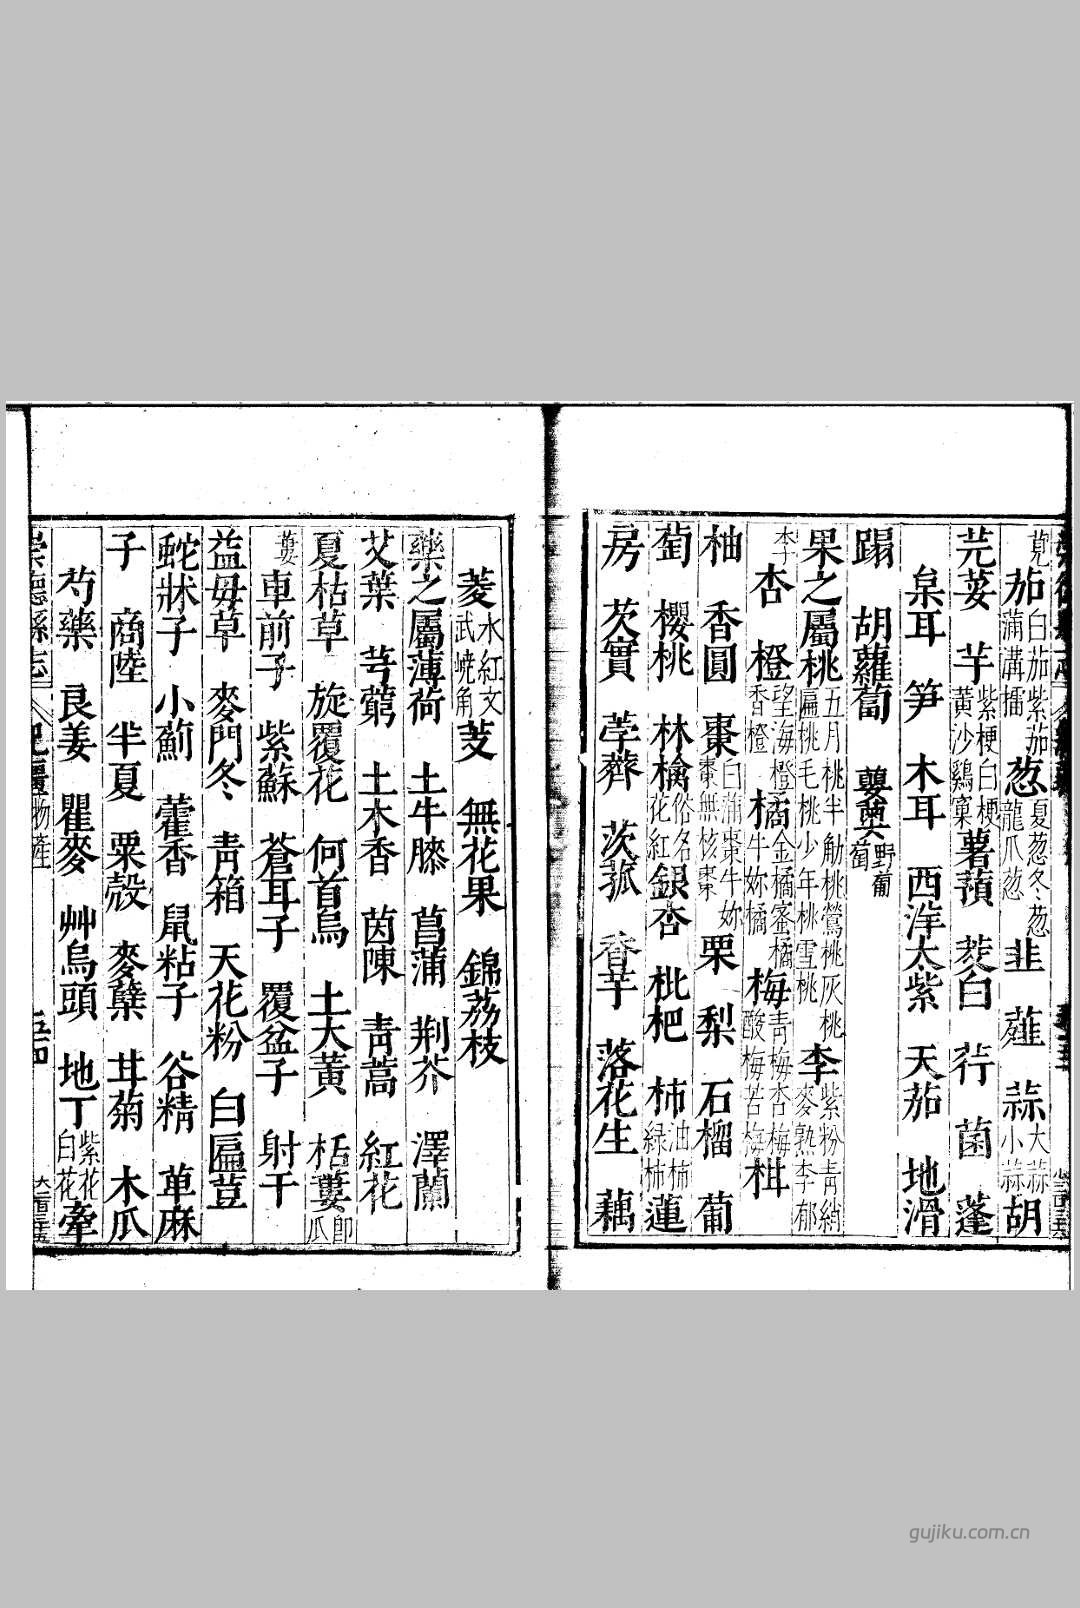 莧茄白茄紫茄蒲溝擂葱夏葱冬葱龍爪葱韭薤蒜大蒜小蒜胡
芫荽芋紫梗白梗黃沙鷄窠薯蕷茭白荇菌蓬
臬耳笋木耳西洋太紫天茄地滑
蹋胡蘿蔔蘡薁野葡萄
果之屬桃五月桃半觔桃鶯桃灰桃匾桃毛桃少年桃雪桃李紫粉青綃麥熟李郁
李杏橙望海橙香橙橘金橘蜜橘牛妳橘梅青梅杏梅酸梅苦梅棋
柚香圓棗白蒲棗牛妳棗無核棗栗梨石榴葡
萄櫻桃林檎俗名花紅銀杏枇杷柿油柿緑柿蓮
房茨實荸薺茨菰香芋落花生藕
菱水紅文武嶢角芰無花果錦荔枝
藥之屬薄荷土牛膝菖蒲荆芥澤蘭
艾葉芎藭土木香茵陳青蒿紅花
夏枯草旋覆花何首烏土大黃栝蔞即瓜
蔞車前子紫蘇蒼耳子覆盆子射干
益母草麥門冬青箱天花粉白匾荳
蛇牀子小薊藿香鼠粘子谷精萆麻
子商陸半夏粟殼麥櫱甘菊木瓜
芍藥良姜瞿麥艸烏頭地丁紫花白花牽
崇德縣志
紀疆
物產
gujiku.com.cn